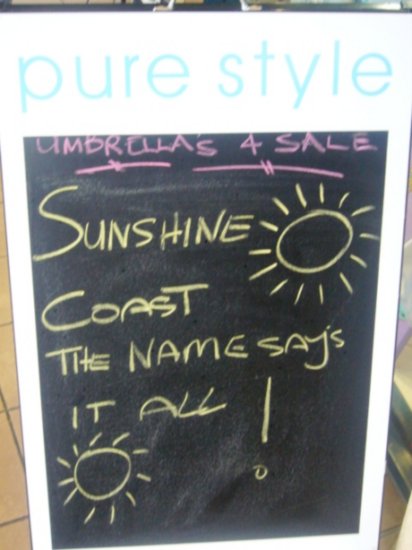 pure style
UMBRELLA'S 4 SALE
SUNSHINE
COAST
THE NAME SAY'S
IT ALL !